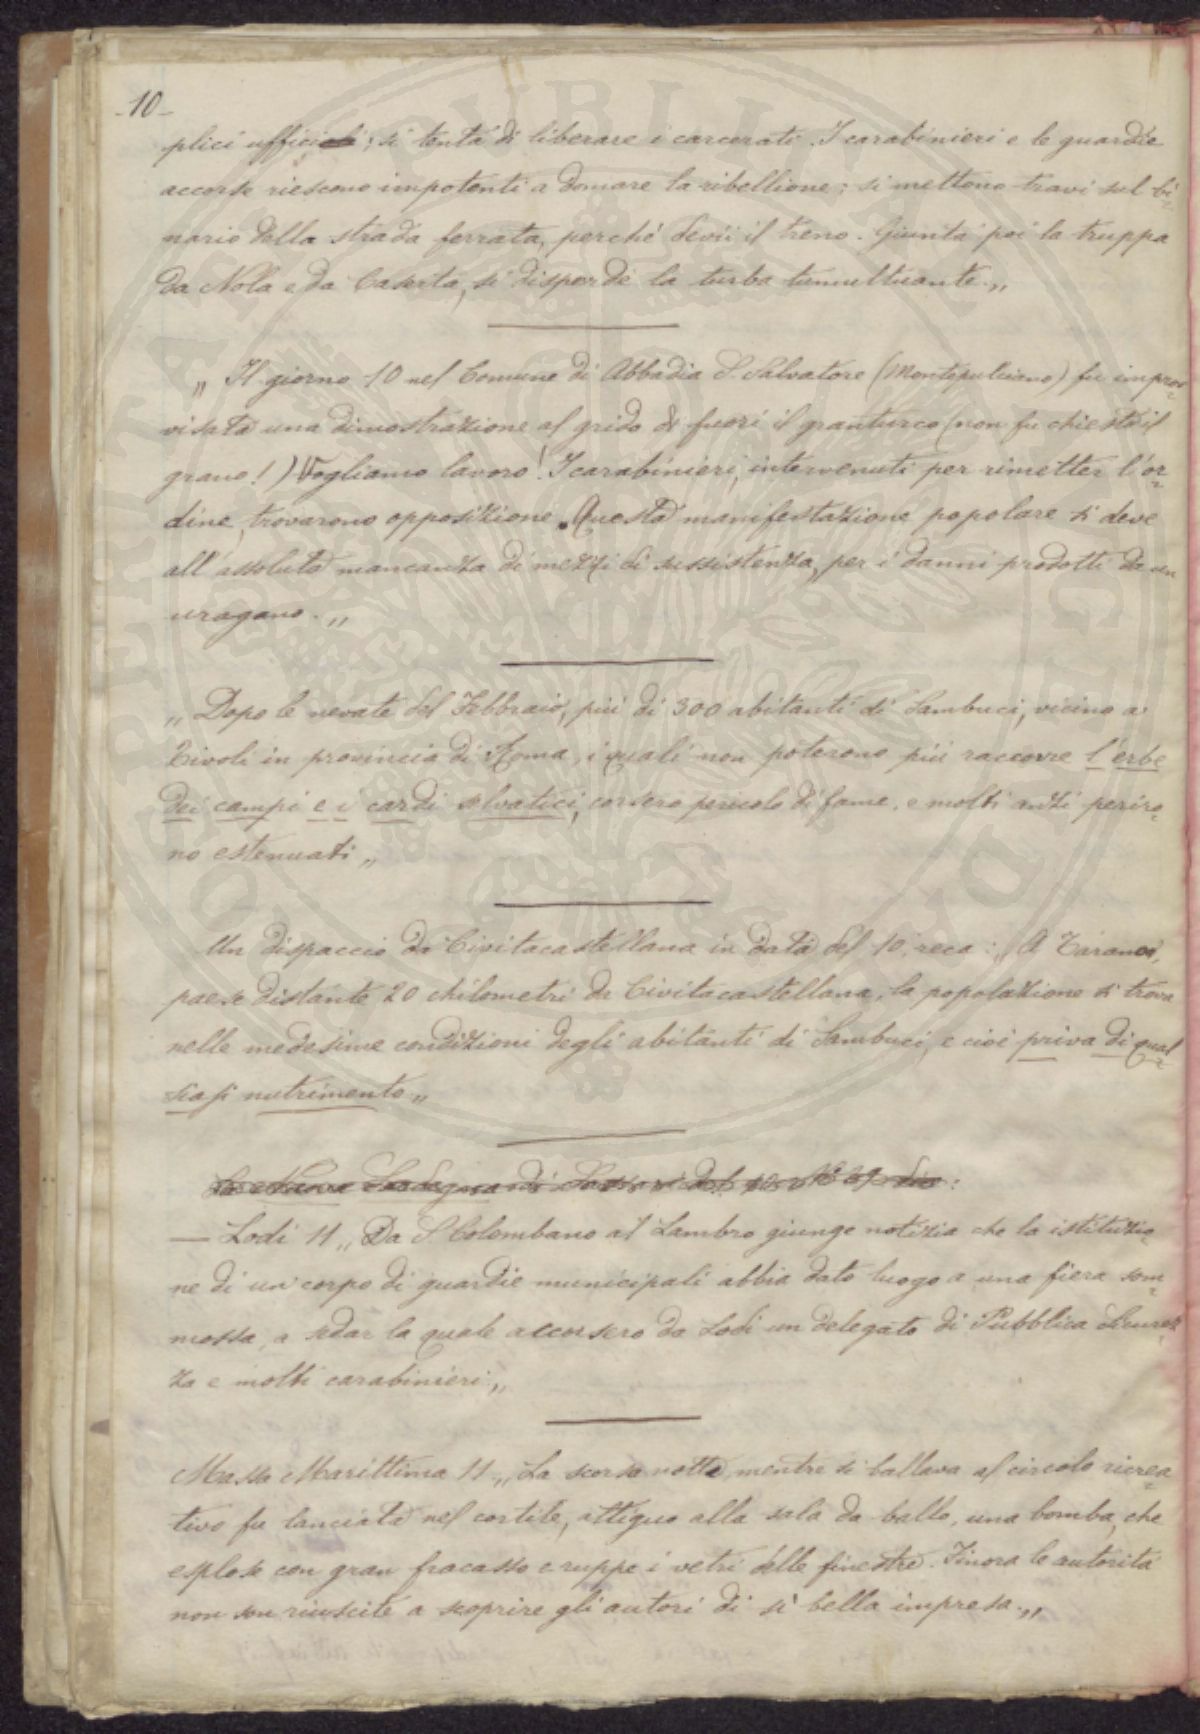 -10-
plici uffici; si tenta di liberare i carcerati. I carabinieri e le guardie
accorse riescono impotenti a domare la ribellione; si mettono travi sul bi-
nario della strada ferrata, perché devii il treno. Giunta poi la truppa
da Nola e da Caserta, si disperde la turba tumultuante.„
„ Il giorno 10 nel Comune di Abbadia S. Salvatore (Montepulciano) fu improv-
visata una dimostrazione al grido di fuori il granturco (non fu chiesto il
grano!) Vogliamo lavoro! I carabinieri, intervenuti per rimetter l'or-
dine, trovarono opposizione. Questa manifestazione popolare si deve
all'assoluta mancanza di mezzi di sussistenza, per i danni prodotti da un
uragano.„
„ Dopo le nevate del Febbraio, più di 300 abitanti di Sambuci, vicino a
Tivoli in provincia di Roma, i quali non poterono più raccorre l'erbe
dei campi e i cardi selvatici, corsero pericolo di fame, e molti anzi periro-
no estenuati „
Un dispaccio da Civitacastellana in data del 10, reca: „ A Tarano,
paese distante 20 chilometri da Civitacastellana, la popolazione si trova
nelle medesime condizioni degli abitanti di Sambuci, e cioè priva di qual-
siasi nutrimento „
La Nuova Sardegna di Sassari del 12 N° 37 dice:
— Lodi 11 „ Da S. Colombano al Lambro giunge notizia che la istituzio-
ne di un corpo di guardie municipali abbia dato luogo a una fiera som-
mossa, a sedar la quale accorsero da Lodi un delegato di Pubblica Sicurez-
za e molti carabinieri „
Massa Marittima 11 „ La scorsa notte, mentre si ballava al circolo ricrea-
tivo fu lanciata nel cortile, attiguo alla sala da ballo, una bomba, che
esplose con gran fracasso e ruppe i vetri delle finestre. Finora le autorità
non son riuscite a scoprire gli autori di sì bella impresa.„